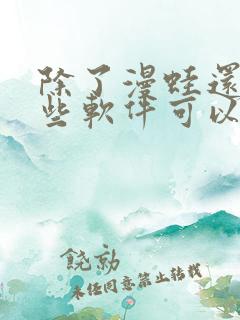 除了漫蛙還
些軟件可以
饒勍
未经同意禁止转载